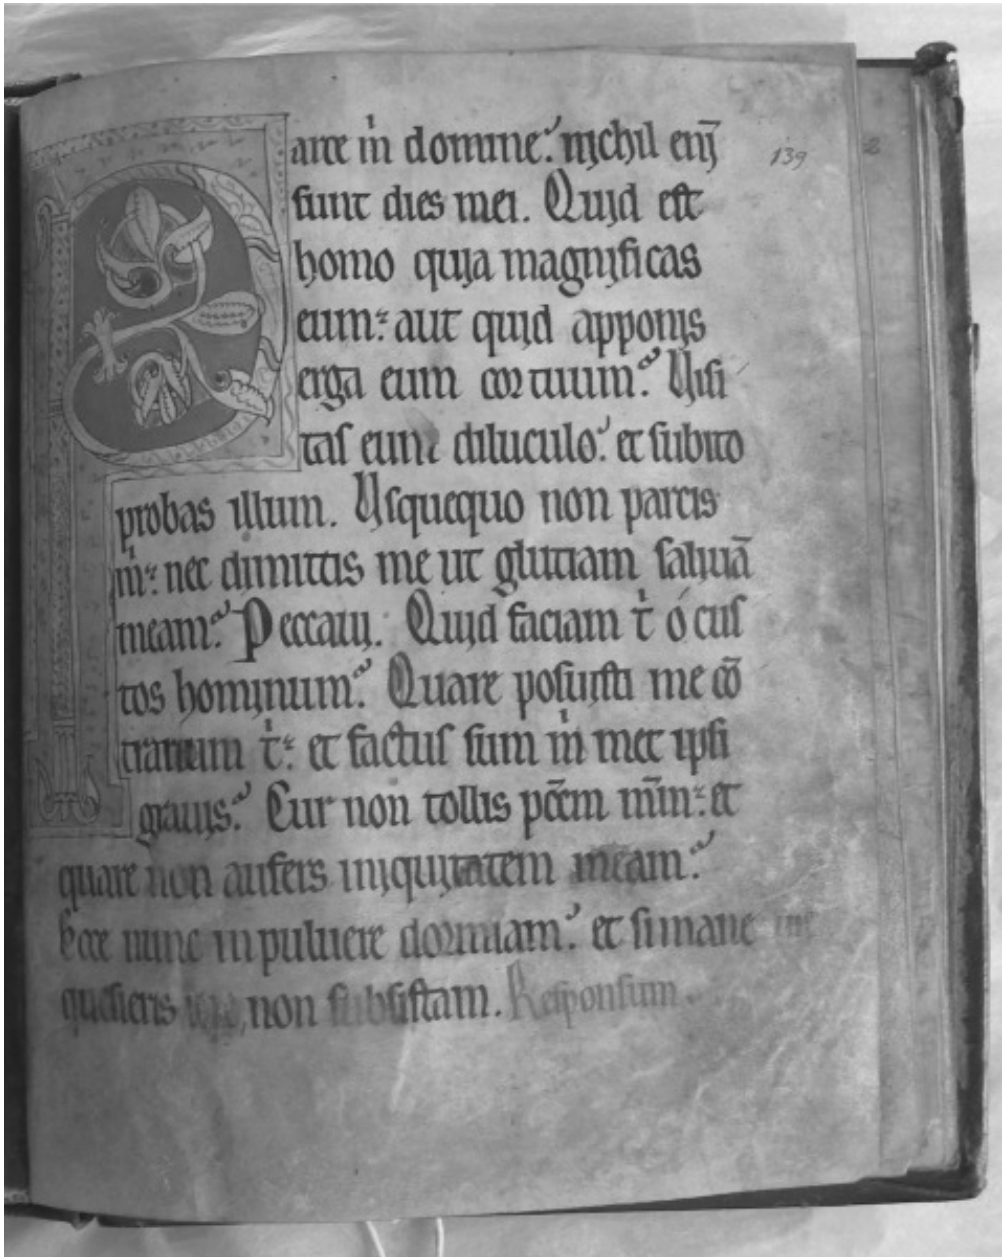 Parce m̄ domine. nichil enī 139 2
sunt dies mei. Quid est
homo quia magnificas
eum: aut quid apponis
erga eum cor tuum. Uisi
tas eum diluculo. et subito
probas illum. Usquequo non parcis
m̄: nec dimittis me ut glutiam saliuā
meam. Peccaui. Quid faciam t̄ o cus
tos hominum. Quare posuisti me cō
trarium t̄: et factus sum m̄met ipsi
grauis. Cur non tollis pc̄m m̄m: et
quare non aufers iniquitatem meam.
Ecce nunc in puluere dormiam. et si mane me
quesieris non subsistam. Responsum